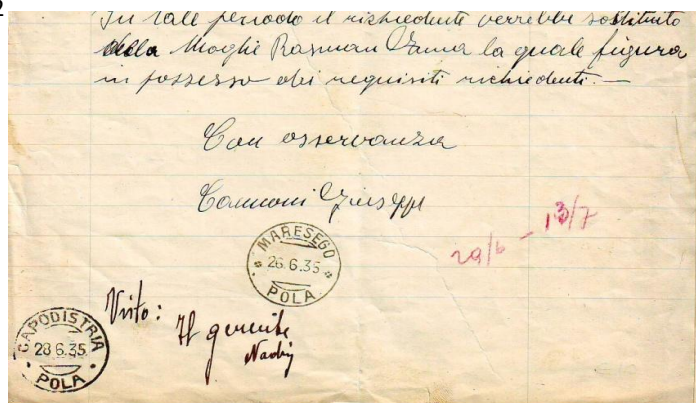 2
In tale periodo il richiedente verrebbe sostituito
della Moglie Rasman Anna la quale figura
in possesso dei requisiti richiedenti.—
Con osservanza
Giuseppe
29/6 - 13/7
MARESEGO
26.6.35
POLA
Visto:
Il gerente
CAPODISTRIA
28 6.35
POLA